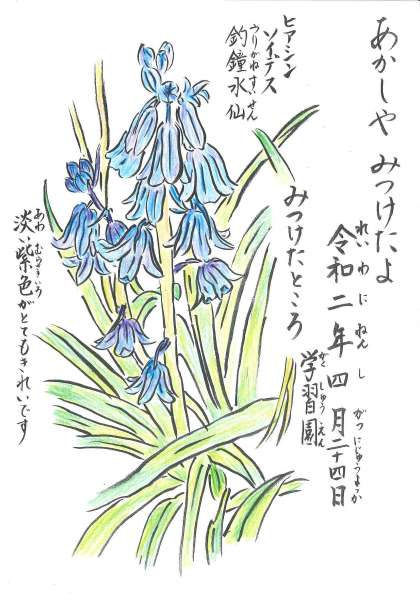 あかしや みつけたよ
れいわ に ねん し がつ にじゅうよっか
令和二年四月二十四日
みつけたところ
がくしゅうえん
学習園
ヒアシン
ソイデス
つりがねすいせん
釣鐘水仙
あわ むらさきいろ
淡い紫色がとてもきれいです